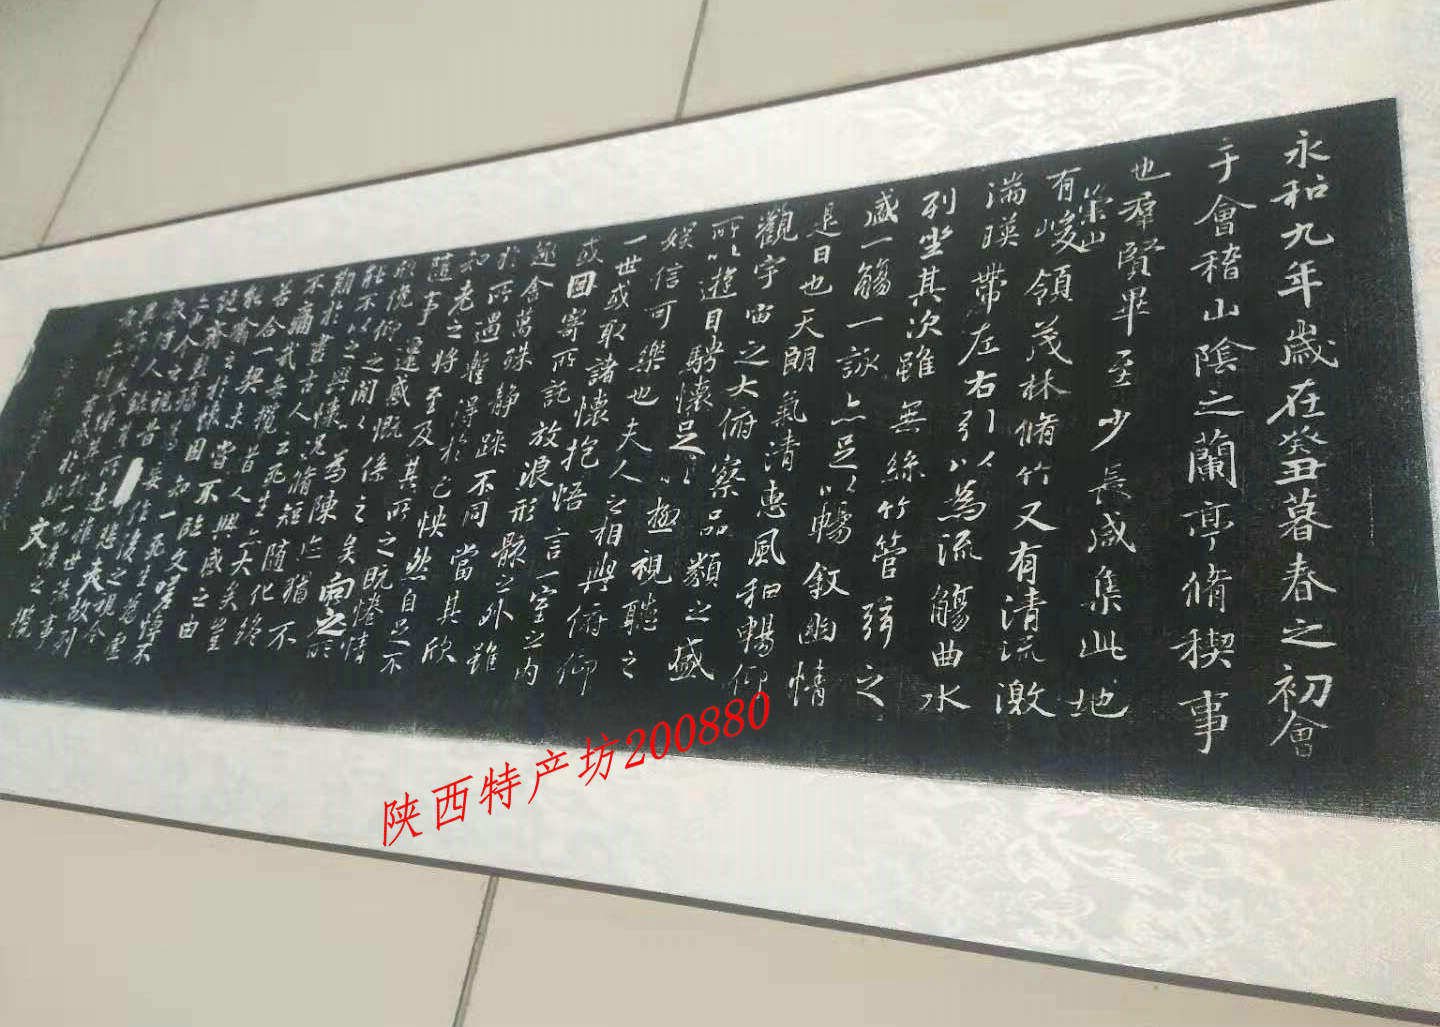 永和九年歲在癸丑暮春之初會
于會稽山陰之蘭亭脩稧事
也羣賢畢至少長咸集此地
有崇山峻領茂林脩竹又有清流激
湍暎帶左右引以為流觴曲水
列坐其次雖無絲竹管弦之
盛一觴一詠亦足以暢敘幽情
是日也天朗氣清惠風和暢仰
觀宇宙之大俯察品類之盛
所以遊目騁懷足以極視聽之
娛信可樂也夫人之相與俯仰
一世或取諸懷抱悟言一室之內
或因寄所託放浪形骸之外雖
趣舍萬殊靜躁不同當其欣
於所遇暫得於己怏然自足不
知老之將至及其所之既惓情
隨事遷感慨係之矣向之所
欣俛仰之間以為陳迹猶不
能不以之興懷況脩短隨化終
期於盡古人云死生亦大矣豈
不痛哉每攬昔人興感之由
若合一契未嘗不臨文嗟悼不
能喻之於懷固知一死生為虛
誕齊彭殤為妄作後之視今
亦由今之視昔悲夫故列
敘時人錄其所述雖世殊事
異所以興懷其致一也後之攬
者亦將有感於斯文
陕西特产坊200880